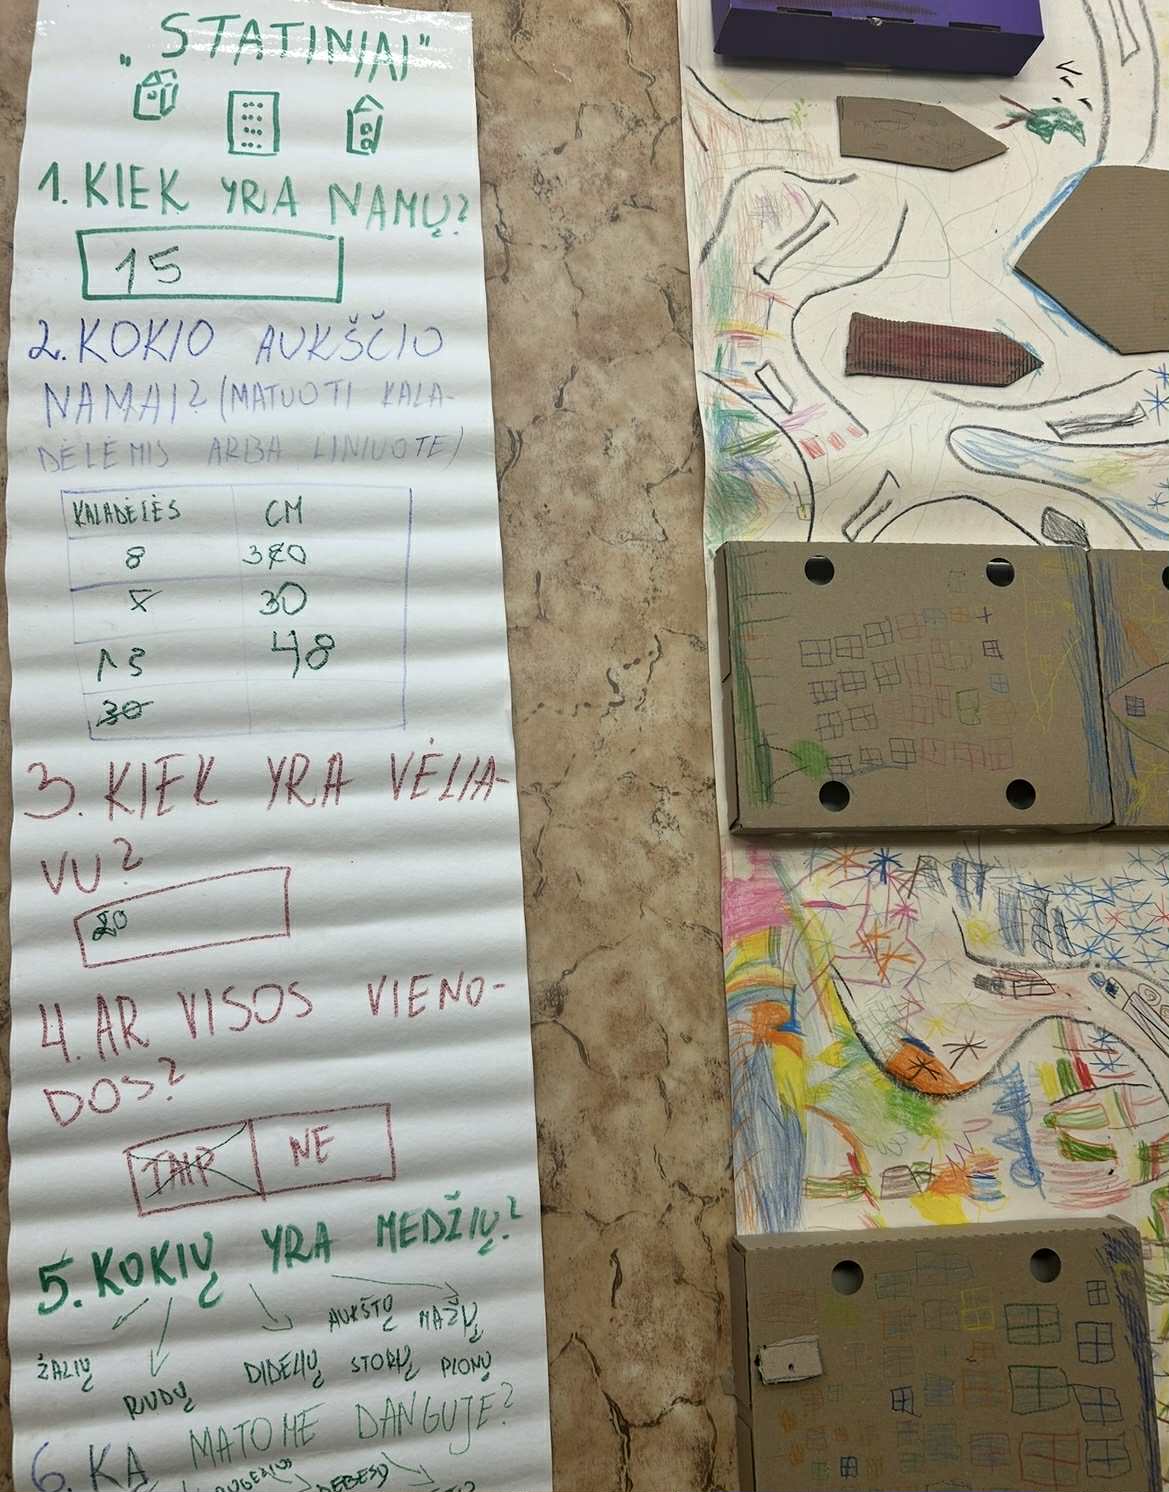 „STATINIAI"
1. KIEK YRA NAMŲ?
15
2. KOKIO AUKŠČIO
NAMAI? (MATUOTI KALA-
DĖLĖMIS ARBA LINIUOTE)
KALADĖLĖS CM
8
30
13 48
30
3. KIEK YRA VĖLIA-
VU?
20
4. AR VISOS VIENO-
DOS?
TAIP NE
5. KOKIŲ YRA MEDŽIŲ?
AUKŠTO MAŽŲ
ŽALIŲ DIDELIŲ STORŲ PLONŲ
RUDŲ
6. KĄ MATOME DANGUJE?
DEBESŲ